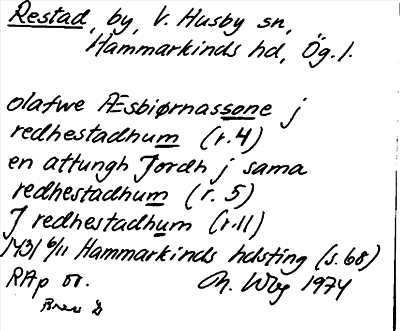 Restad, by, V. Husby sn,
Hammarkinds hd, Ög.l.
olafwe Æsbiørnassone j
redhestadhum (r.4)
en attungh Jordh j sama
redhestadhum (r. 5)
J redhestadhum (r.11)
1431 6/11 Hammarkinds hdsting (s.68)
RAp or.
Ch. Wbg 1974